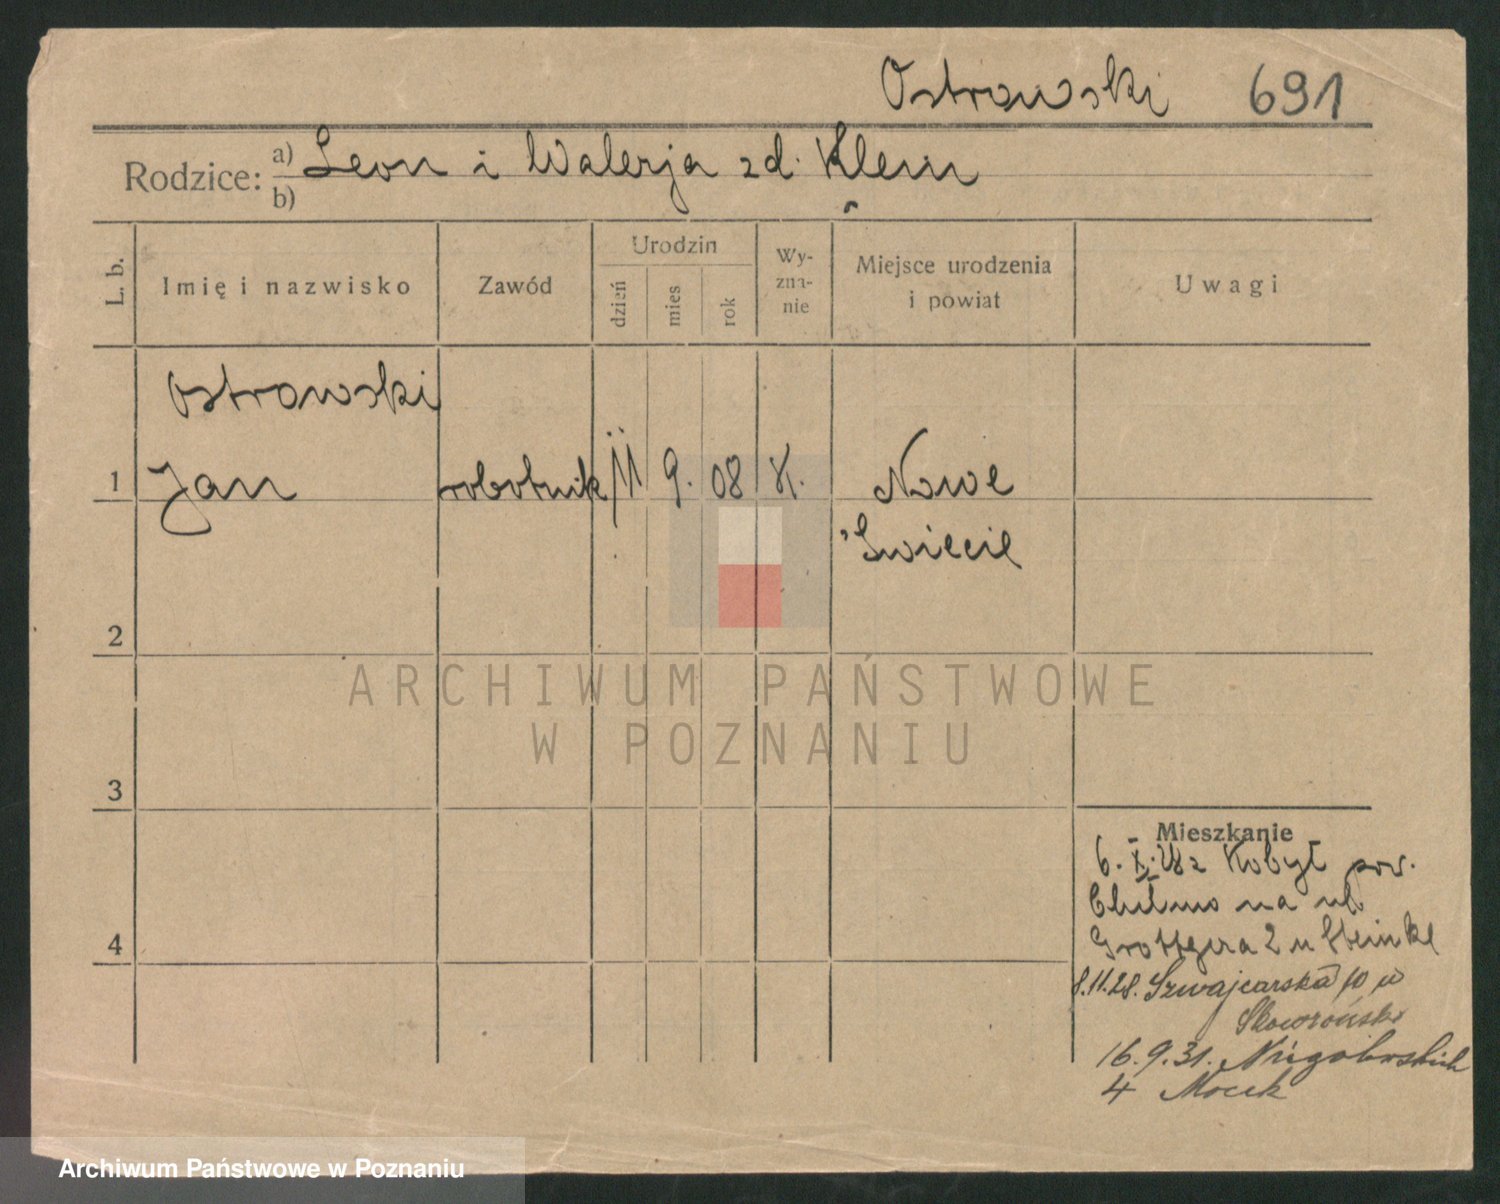 Ostrowski 691
Rodzice: a) Leon i Walerja zd. Klein
b)
L. b. Imię i nazwisko Zawód Urodzin dzień mies rok Wy-zna-nie Miejsce urodzenia i powiat Uwagi
Ostrowski
1 Jan robotnik 11 9. 08 K. Nowe
Świecie
2
ARCHIWUM PAŃSTWOWE
W POZNANIU
3
Mieszkanie
6. X. 28 z Kobył pow.
Chełmno na ul
Grottgera 2 u Steinke
4
8.11.28. Szwajcarska 10 u
Skowroński
16.9.31. Niegolewskich
4 Mocek
Archiwum Państwowe w Poznaniu